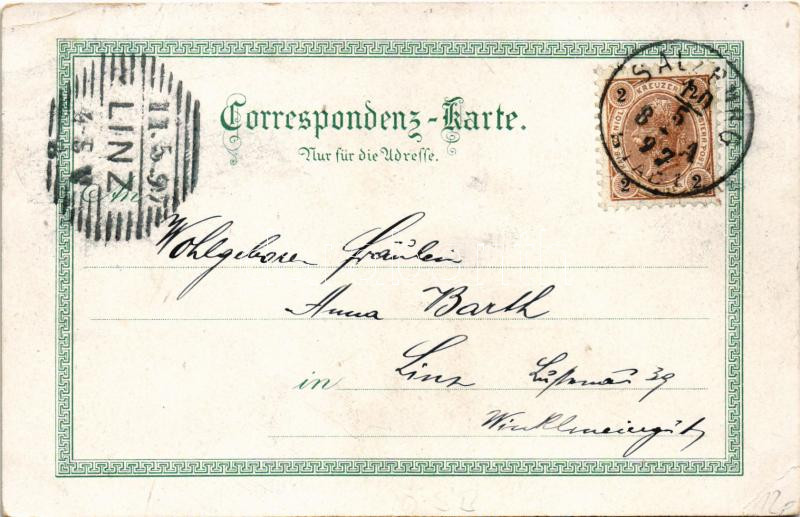 Correspondenz-Karte.
Nur für die Adresse.
11.5.97
LINZ
SALZBURG
8 5
97
KREUZER
2
2 2
An
Wohlgeboren Fräulein
Anna Barth
in Linz Lustenau 39
Winklmeiergut